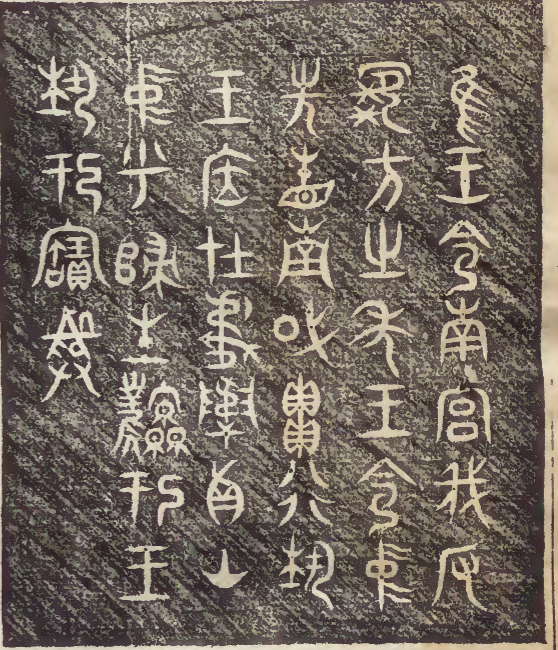 隹王令南宮伐反
虎方之年王令中
先省南或貫行埶
王㡴在夔真山
中乎歸生鳳于王
埶于寶彝